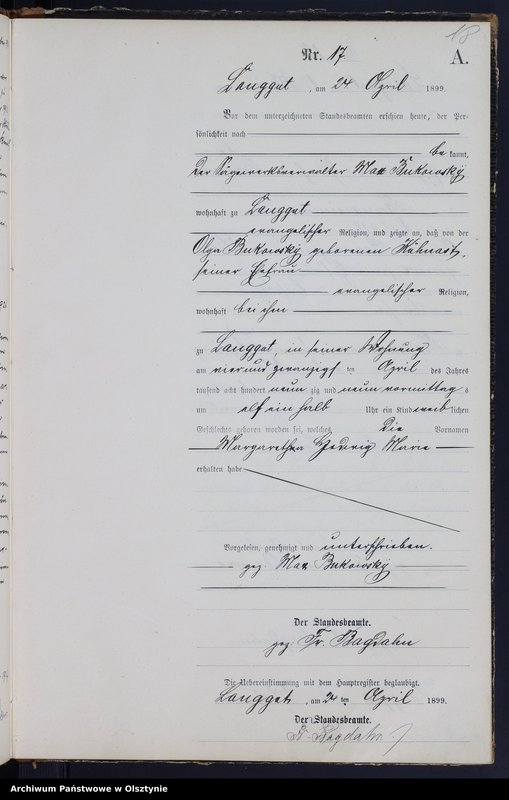 18
Nr. 17
A.
Langgut, am 24 April 1899.
Vor dem unterzeichneten Standesbeamten erschien heute, der Per-
sönlichkeit nach
be kannt,
der Sägewerksverwalter Max Bukowsky
wohnhaft zu Langgut
evangelischer Religion, und zeigte an, daß von der
Olga Bukowsky geborenen Kühnast,
seiner Ehefrau
evangelischer Religion,
wohnhaft bei ihm
zu Langgut, in seiner Wohnung
am vierundzwanzigsten April des Jahres
tausend acht hundert neun zig und neun vormittag s
um elf ein halb Uhr ein Kind weib lichen
Geschlechts geboren worden sei, welches die Vornamen
Margarethea Hedwig Marie
erhalten habe
Vorgelesen, genehmigt und unterschrieben.
gez. Max Bukowsky
Der Standesbeamte.
gez. Fr. Bagdahn
Die Uebereinstimmung mit dem Hauptregister beglaubigt.
Langgut, am 24 ten April 1899.
Der Standesbeamte.
Bagdahn
Archiwum Państwowe w Olsztynie